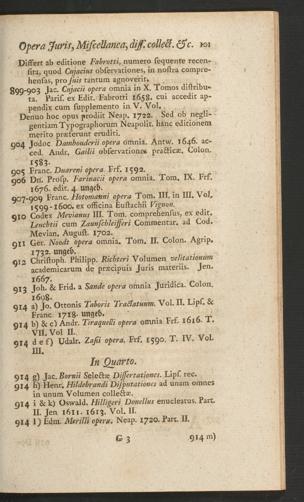 Opera Juris, Miscellanea, diss. collect. &c. 101
Differt ab editione Fabrotti, numero sequente recen-
sita, quod Cujacius observationes, in nostra compre-
hensas, pro suis tantum agnoverit.
899-903 Jac. Cujacii opera omnia in X. Tomos distribu-
ta. Paris. ex Edit. Fabrotti 1658. cui accedit ap-
pendix cum supplemento in V. Vol.
Denuo hoc opus prodiit Neap. 1722. Sed ob negli-
gentiam Typographorum Neapolit. hanc editionem
merito præferunt eruditi.
904 Jodoc Damhouderii opera omnia. Antw. 1646. ac-
ced. Andr. Gailii observationes practicæ. Colon.
1583.
905 Franc. Duareni opera. Frf. 1592.
906 Dn. Prosp. Farinacii opera omnia. Tom. IX. Frf.
1676. edit. 4. ungeb.
907-909 Franc. Hotomanni opera Tom. III. in III. Vol.
1599-1600. ex officina Eustachii Vignon.
910 Codex Mevianus III. Tom. comprehensus, ex edit.
Lenchtii cum Zaunschleifferi Commentar. ad Cod.
Mevian. August. 1702.
911 Ger. Noodt opera omnia. Tom. II. Colon. Agrip.
1732. ungeb.
912 Christoph. Philipp. Richteri Volumen velitationum
academicarum de præcipuis Juris materiis. Jen.
1667.
913 Joh. & Frid. a Sande opera omnia Juridica. Colon.
1698.
914 a) Jo. Ottonis Taboris Tractatuum. Vol. II. Lips. &
Franc. 1718. ungeb.
914 b) & c) Andr. Tiraquelli opera omnia Frf. 1616. T.
VII. Vol II.
914 d e f) Udalr. Zasii opera. Frf. 1590. T. IV. Vol.
III.
In Quarto.
914 g) Jac. Bornii Selectæ Dissertationes. Lips. rec.
914 h) Henr. Hildebrandi Disputationes ad unum omnes
in unum Volumen collectæ.
914 i & k) Oswald. Hilligeri Donellus enucleatus. Part.
II. Jen 1611. 1613. Vol. II.
914 l) Edm. Merilli opera. Neap. 1720. Part. II.
G 3 914 m)